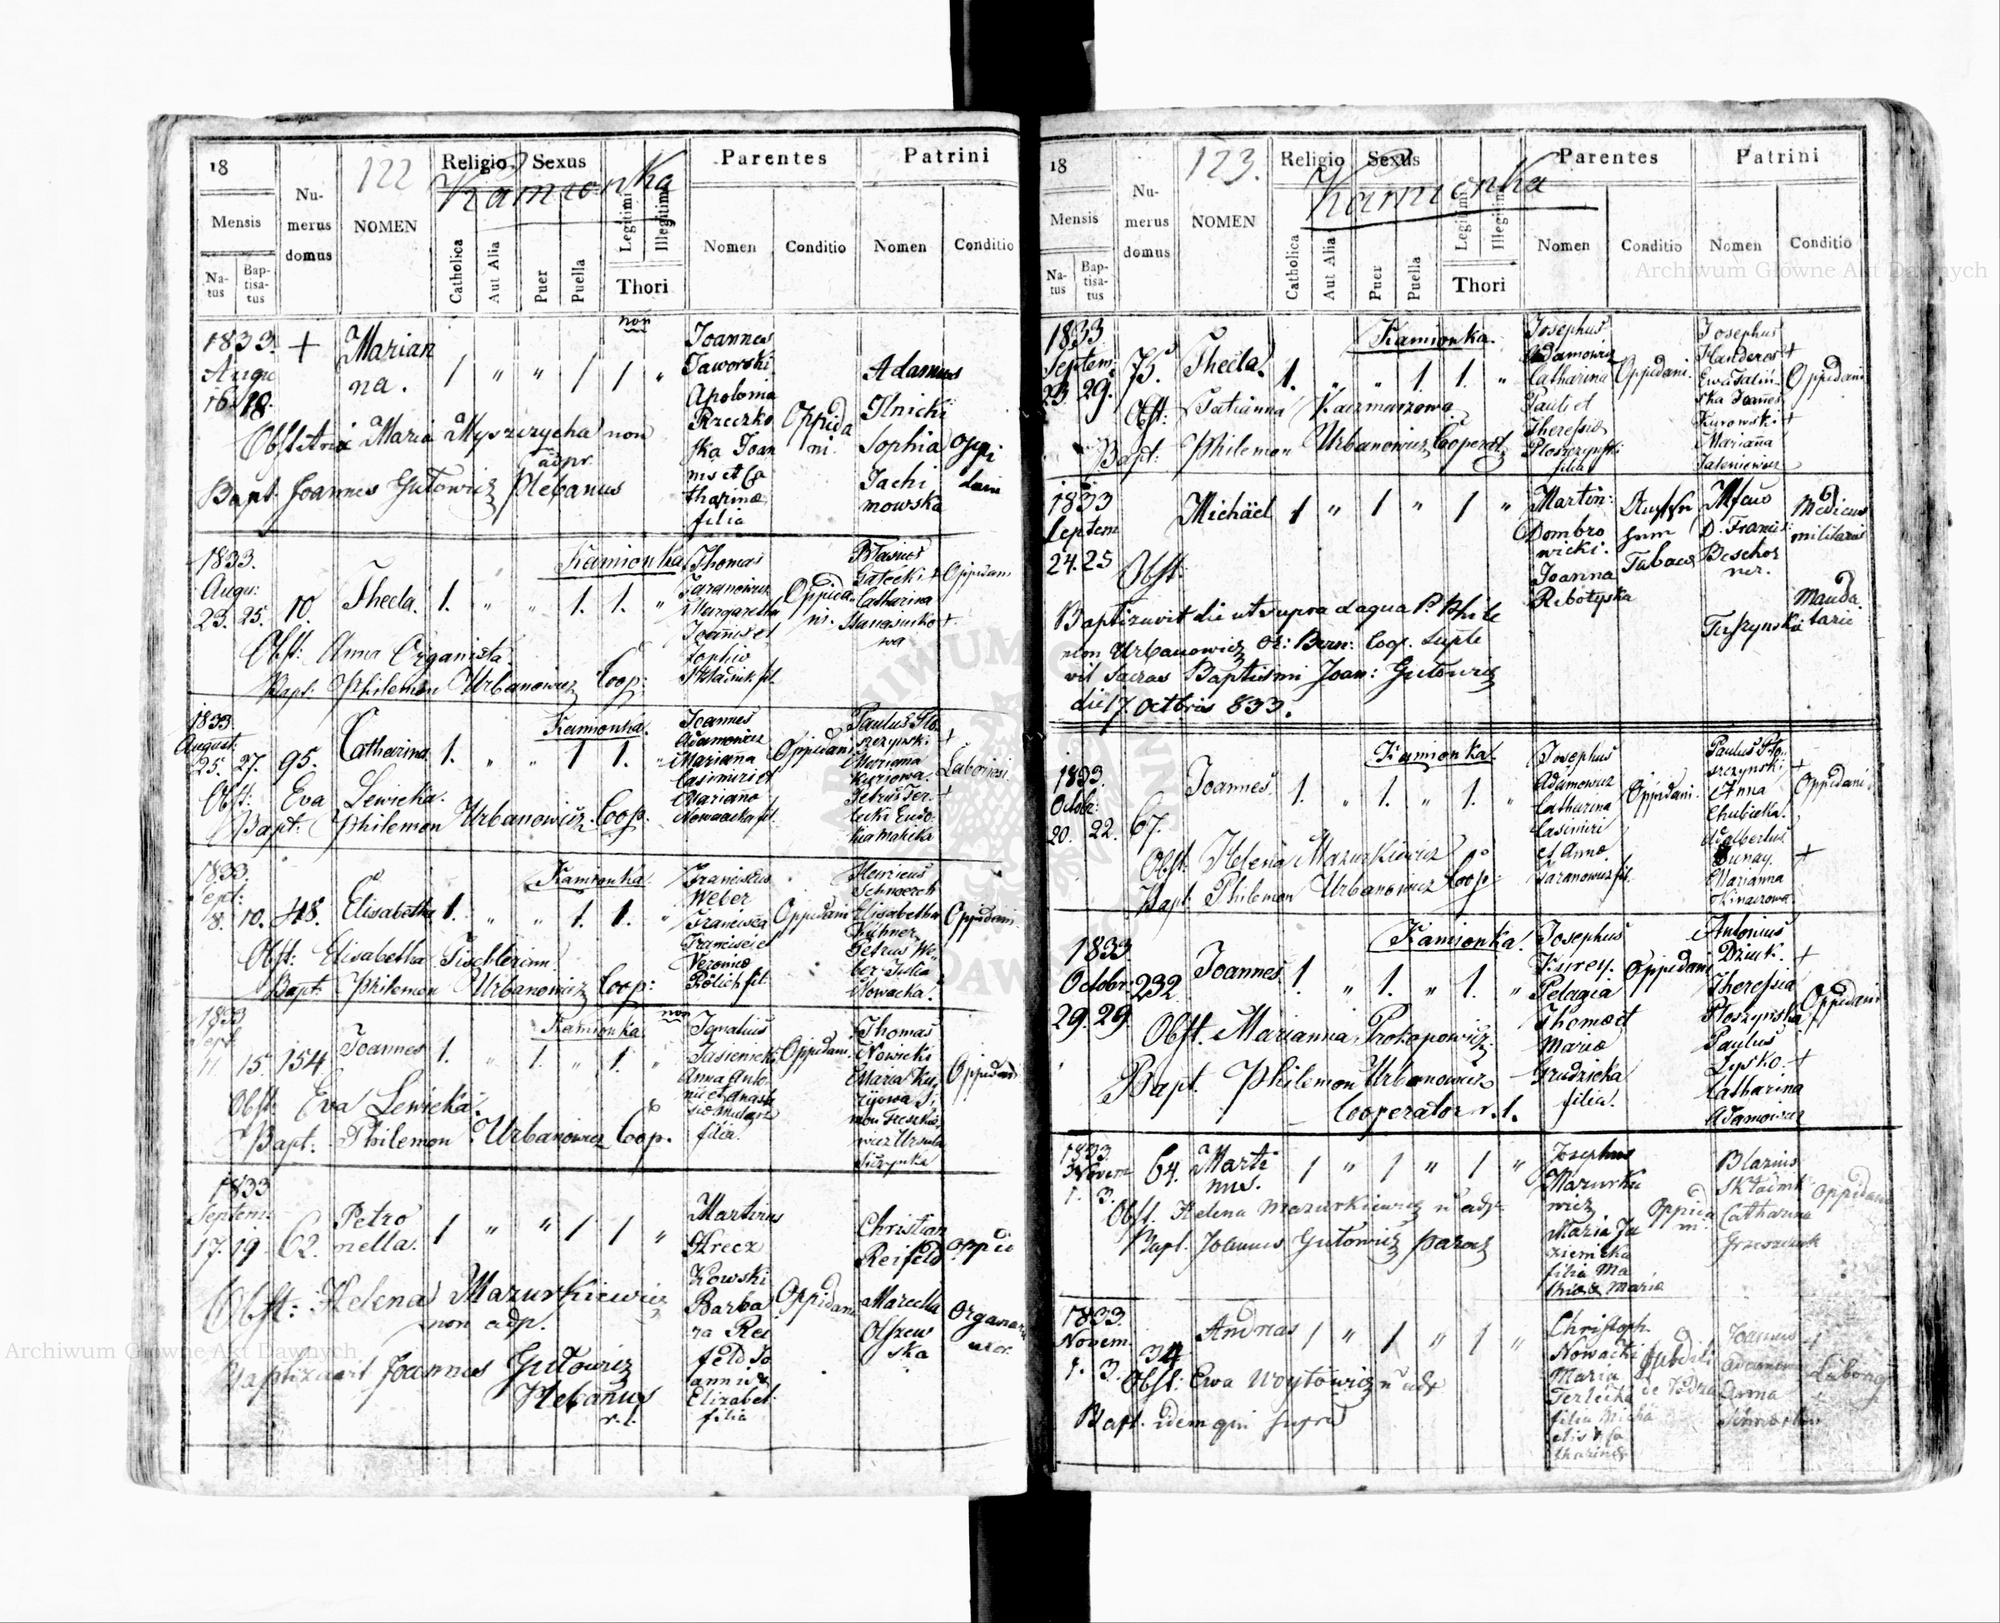 18
122
Religio
Sexus
Parentes
Patrini
Kamionka
Mensis
Nu-
merus
domus
NOMEN
Catholica
Aut Alia
Puer
Puella
Legitimi
Illegitimi
Thori
Nomen
Conditio
Nomen
Conditio
Na-
tus
Bap-
tisa-
tus
non
1833. + Marian
na.
16. 18.
1 " " 1 1 "
Joannes
Jaworski
Apolonia
Rzeczko
ska Joan
nis et Ca
tharinæ
filia
Oppida
ni.
Adamus
Ilnicki
Sophia
Jachi
mowska
Oppi
dani
Obstetrix Maria Myszczycha non
adpr.
Bapt. Joannes Gutowicz Plebanus
1833.
Augu:
23. 25. 10. Thecla. 1. " " 1. 1. "
Kamionka
Thomas
Taranowicz
Margaretha
Joannis et
Sophie
Składnik fil.
Oppida
ni.
Blasius
Gałecki +
Catharina
Oppidani
Obst: Anna Organista.
Bapt: Philemon Urbanowicz Coop:
1833
August.
25. 27. 95. Catharina. 1. " " 1 1. "
Kamionka.
Joannes
Adamowicz
Marianna
Casimiri et
Marianna
Nowacka fil.
Oppidani
Paulus Pło
szczynski +
Marianna
Laboriosi
Obst: Eva Lewicka.
Bapt: Philemon Urbanowicz. Coop.
1833.
Sept:
8. 10. 48. Elisabetha 1. " " 1. 1. "
Kamionka.
Franciscus
Weber
Francisca
Francisci et
Veronice
Rölich fil.
Oppidani
Henricus
Schnoerch
Elisabetha
Hübner.
Petrus We-
ber Julia
Nowacka.
Oppidani
Obst: Elisabetha Tischlerinn.
Bapt: Philemon Urbanowicz Coop:
1833
Sept.
11 15. 154 Joannes 1. " 1. " 1. "
Kamionka
non
Ignatius
Jasienicki
Anna Anto-
filia.
Oppidani.
Thomas
Nowicki
Oppidani
Obst: Eva Lewicka.
Bapt: Philemon Urbanowicz Coop.
1833
Septem:
17. 19. 62. Petro
nella. 1 " " 1 1 "
Martinus
Krecz
kowski
Barba
ra Rei
feld Jo
annis &
Elizabet:
filia
Oppidani
Christian
Reifeld
Marcella
Olszew
ska
Oppid
Obst: Helena Mazurkiewicz
non adp.
Baptizavit Joannes Gutowicz
Plebanus
18
123.
Religio
Sexus
Parentes
Patrini
Kamionka
Mensis
Nu-
merus
domus
NOMEN
Catholica
Aut Alia
Puer
Puella
Legitimi
Illegitimi
Thori
Nomen
Conditio
Nomen
Conditio
Na-
tus
Bap-
tisa-
tus
1833
Septem:
23. 29. 75. Thecla. 1. " " 1. 1. "
Kamionka.
Josephus
Adamowicz
Catharina
Pauli et
Theresie
Płoszczynski
filia
Oppidani.
Josephus
+
Kurowski +
Marianna
Oppidani
Obst: Tatianna Kaczmarzowa.
Bapt: Philemon Urbanowicz Cooperat
1833
Septem
24. 25 Michäel 1 " 1 " 1 "
Martin:
Dombro
wicki.
Joanna
Rebotyska
D. Francis:
Beschor
ner.
Medicus
militaris
Obst:
Baptizavit die ut supra d aqua P. Phile
mon Urbanowicz Or: Bern: Coop. Suple
vit Sacras Baptismi Joan: Gutowicz
die 17 Octbris 833.
1833.
Octobr:
20. 22. 67. Joannes. 1. " 1. " 1. "
Kamionka.
Josephus
Adamowicz
Catharina
Casimiri
et Anna
Taranowicz fil.
Oppidani.
Paulus Pło-
szczynski +
Anna
Chubicka.
Adalbertus
Dunay. +
Marianna
Oppidani
Obst. Helena Mazurkiewicz
Bapt. Philemon Urbanowicz Coop:
1833
Octobr.
29. 29 232 Joannes. 1. " 1. " 1. "
Kamionka.
Josephus
Kurey.
Pelagia
Thomæ et
Mariæ
Grudzicka
filia.
Oppidani
Antonius
Dziuk. +
Theressia
Płoszynska
Paulus
Lysko. +
Catharina
Adamowicz
Oppidani
Obst. Marianna Prokopowicz
Bapt. Philemon Urbanowicz
Cooperator r. l.
1833
Novem
1. 3. 64. Marti
nus. 1 " 1 " 1 "
Josephus
Mazurkie
wicz
Maria Ja
ziemicka
filia Ma
Mariæ
Oppida
ni.
Blazius
Składnik
Catharina
Grzeszczuk
Oppidani
Obst. Helena Mazurkiewicz n adp
Bapt. Joannes Gutowicz Paroch
1833.
Novem.
1. 3. 34 Andreas 1 " 1 " 1 "
Christoph.
Nowacki
Maria
Terlecka
filia Micha
elis & Ca
tharinæ
Joannes +
Adamowicz
Anna
Obst: Ewa Woytowicz n adp
Bapt. idem qui supra
Archiwum Główne Akt Dawnych
Archiwum Główne Akt Dawnych
ARCHIWUM GŁÓWNE AKT DAWNYCH